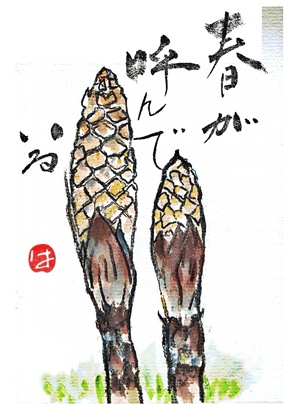 春が
呼んで
いる
は